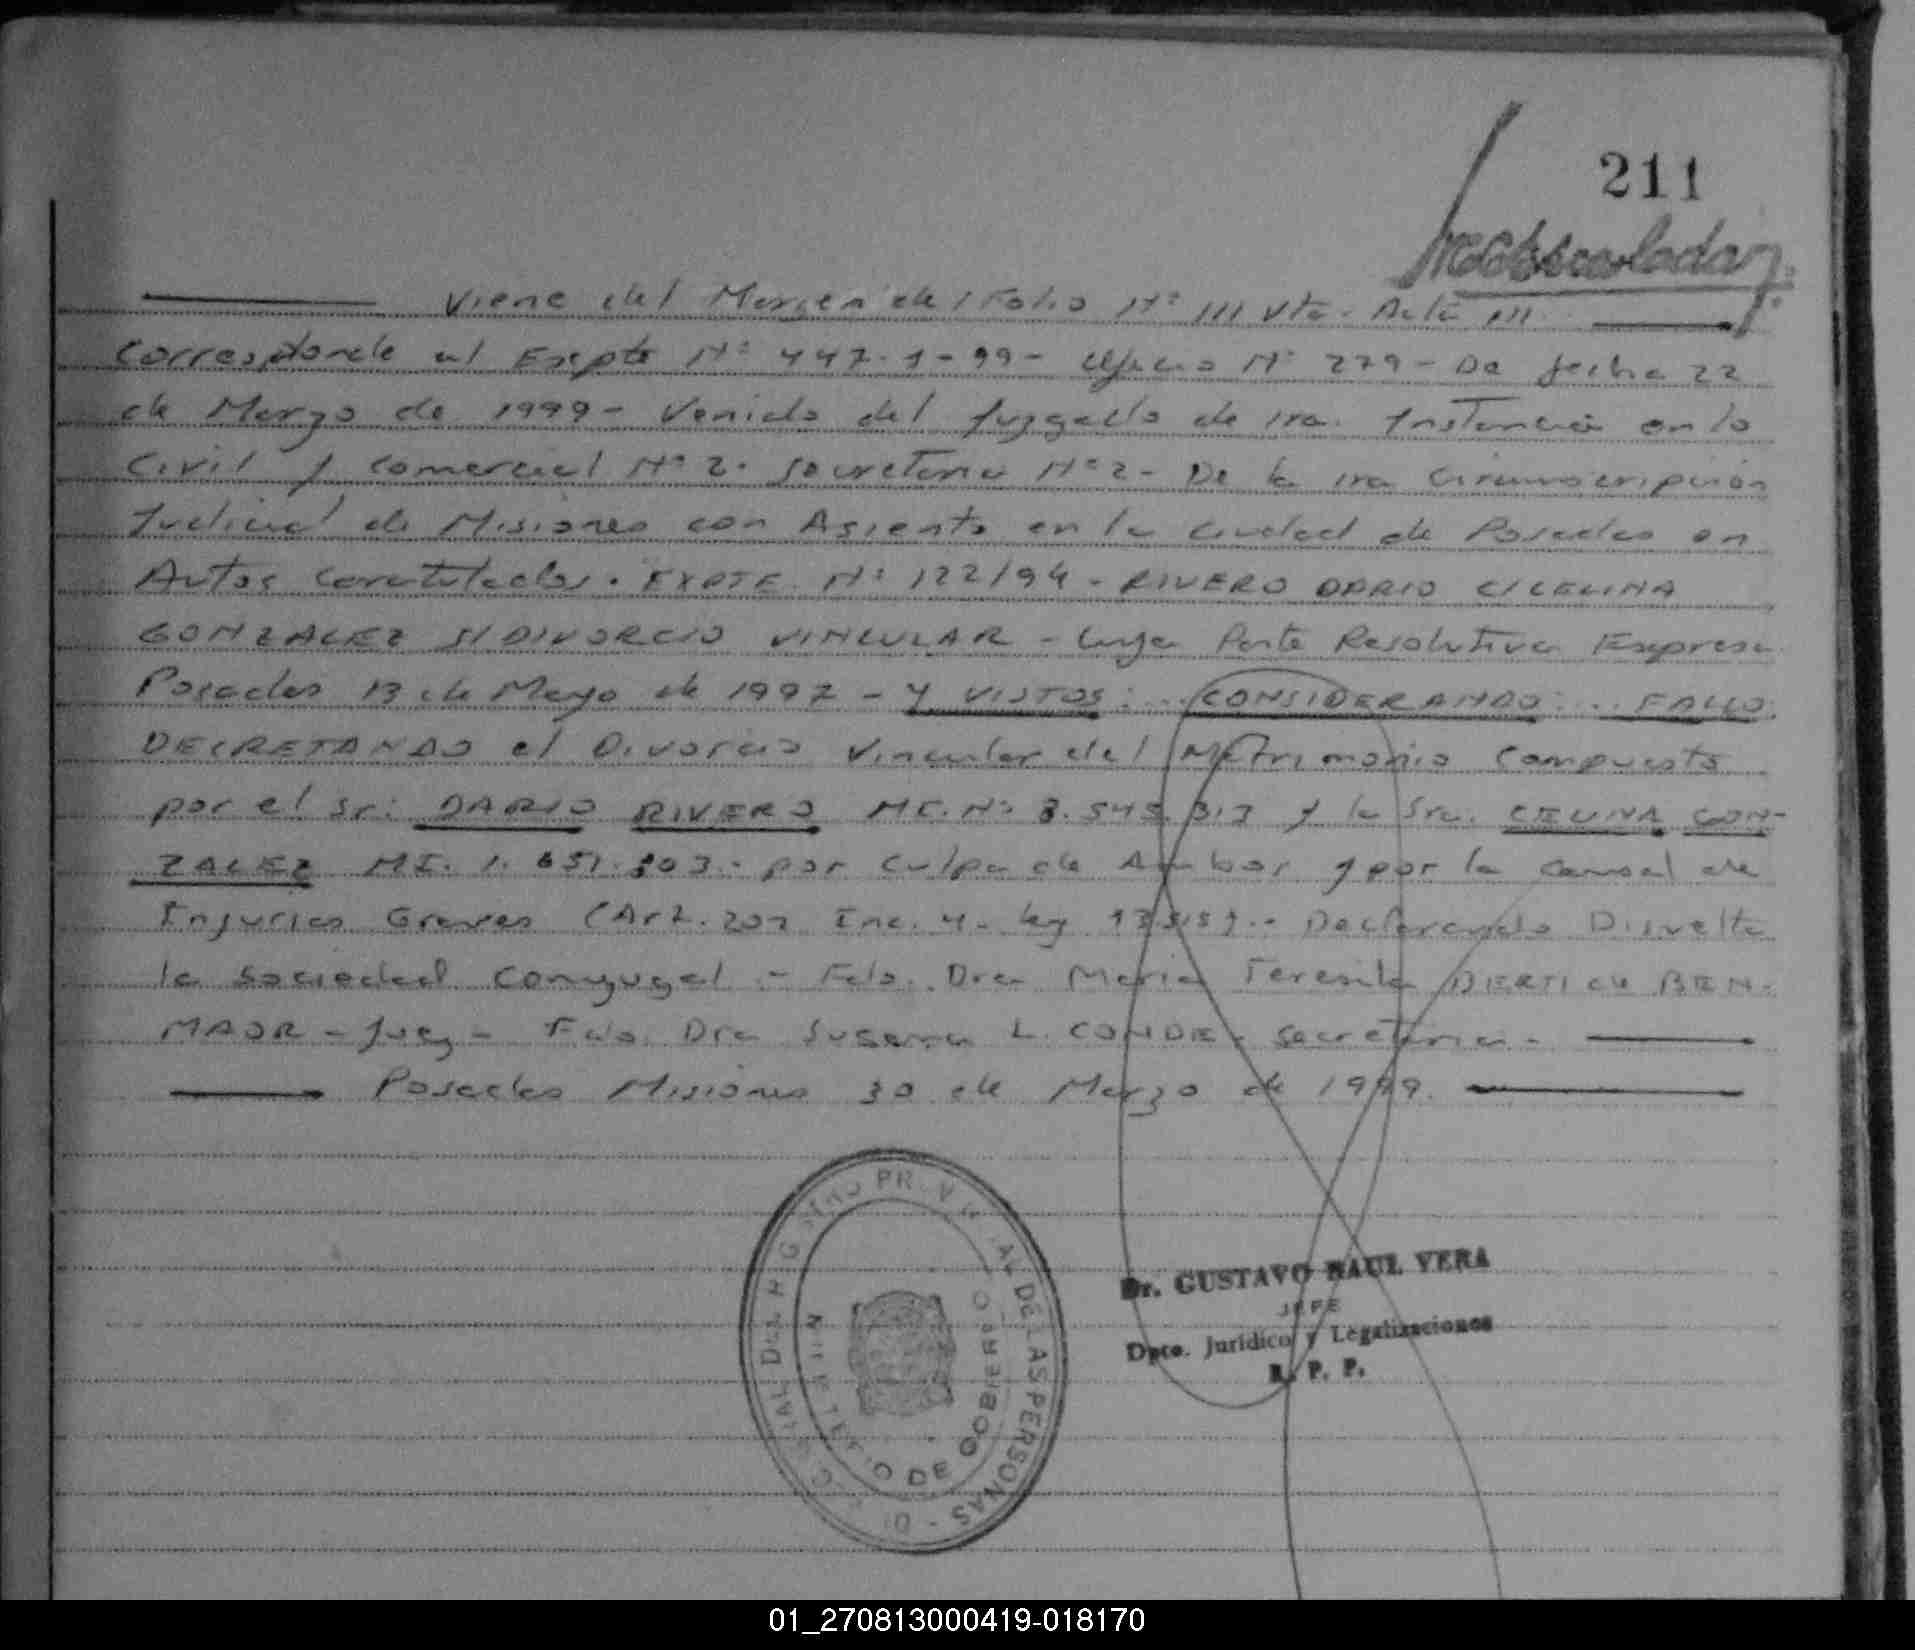 211
Viene del Margen del Folio Nº 111 Vta. Acta 111
Corresponde al Expte Nº 447-1-99- Oficio Nº 279- De fecha 22
de Marzo de 1999- Venido del Juzgado de 1ra. Instancia en lo
Civil y Comercial Nº 2. Secretaria Nº 2- De la 1ra Circunscripción
Judicial de Misiones con Asiento en la Ciudad de Posadas en
Autos Caratulados. EXPTE. Nº 122/94- RIVERO DARIO C/CELINA
GONZALEZ S/DIVORCIO VINCULAR - Cuya Parte Resolutiva Expresa
Posadas 13 de Mayo de 1997 - Y VISTOS:... CONSIDERANDO:... FALLO.
DECRETANDO el Divorcio Vincular del Matrimonio Compuesto
por el Sr: DARIO RIVERO MI. Nº 8.545.313 y la Sra. CELINA GON-
ZALEZ MI. 1.651.303.- por Culpa de Ambos y por la Causal de
Injurias Graves (Art. 202 Inc. 4. Ley 23515).- Declarando Disuelta
la Sociedad Conyugal - Fdo. Dra Maria Teresita DERTI de BEN-
MAOR - Juez - Fdo. Dra Susana L. CONDE - Secretaria -
Posadas Misiones 30 de Marzo de 1999.
REGISTRO PROVINCIAL DE LAS PERSONAS
MINISTERIO DE GOBIERNO
Dr. GUSTAVO RAUL VERA
JEFE
Dpto. Jurídico y Legalizaciones
R. P. P.
01_270813000419-018170